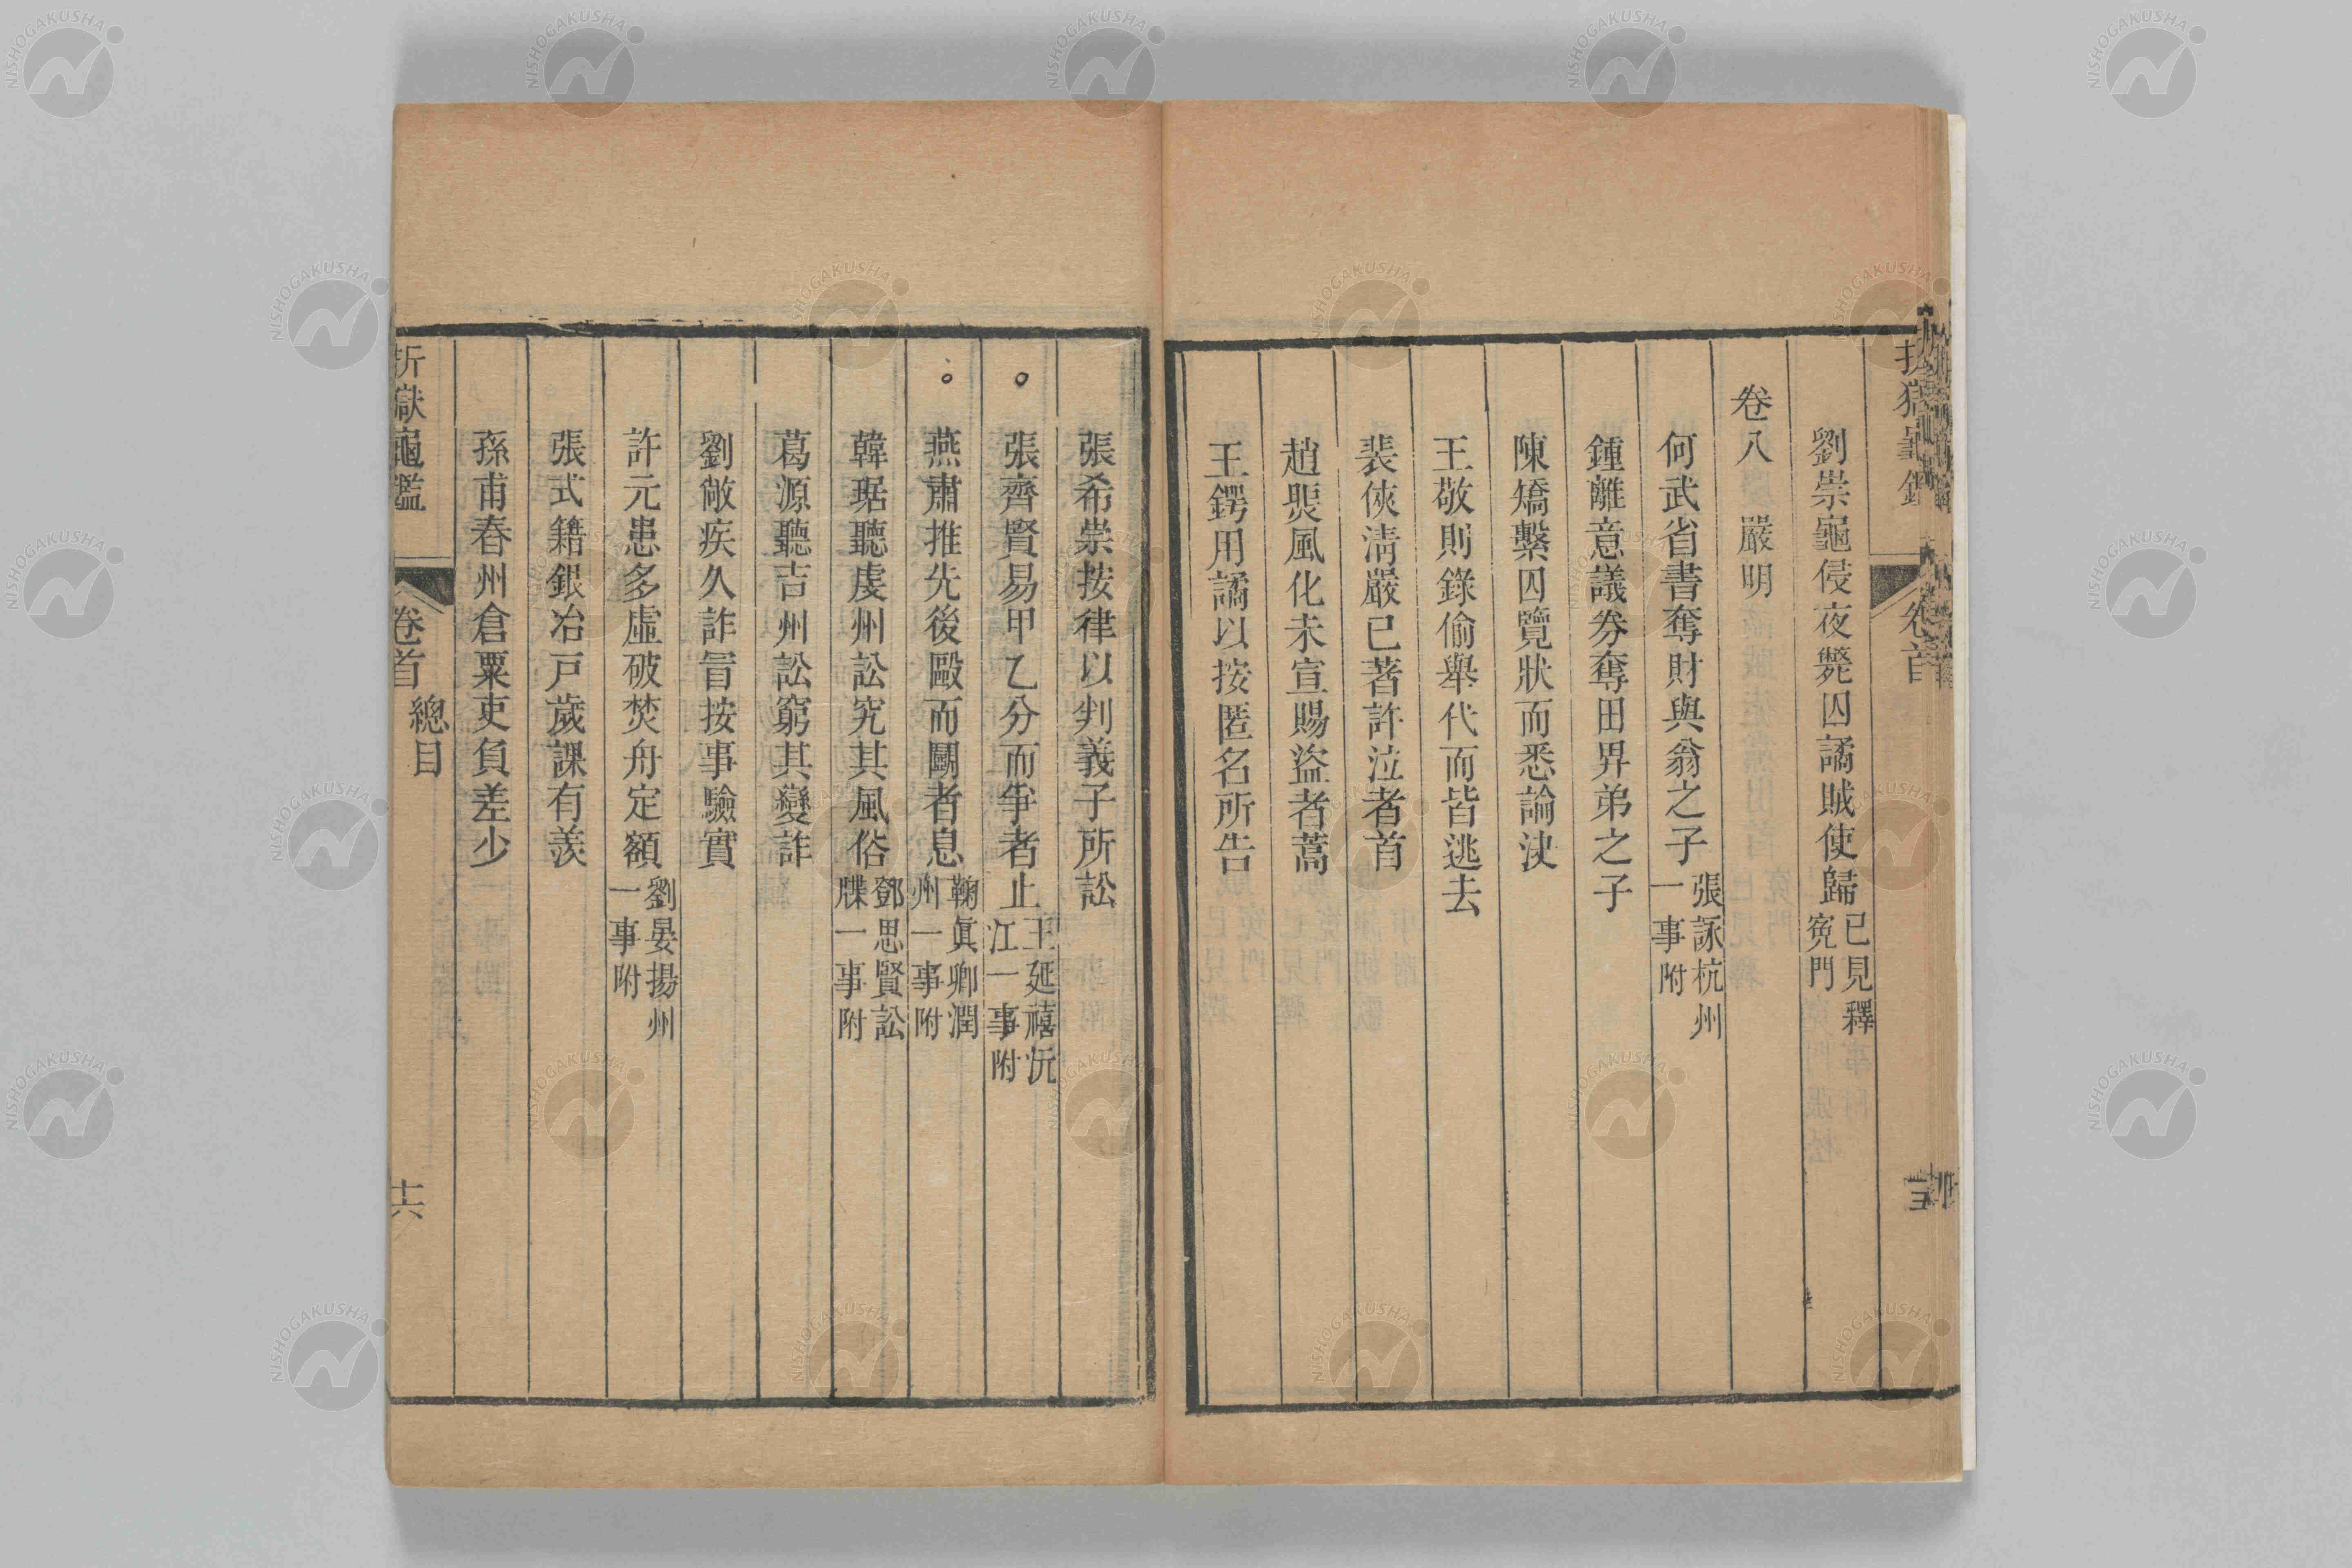 折獄龜鑑 卷首
劉崇龜侵夜斃囚譎賊使歸已見釋寃門
卷八 嚴明
何武省書奪財與翁之子張詠杭州一事附
鍾離意議券奪田畀弟之子
陳矯繫囚覽狀而悉論決
王敬則錄偷舉代而皆逃去
裴俠淸嚴已著許泣者首
趙煚風化未宣賜盜者蒿
王鍔用譎以按匿名所告
張希崇按律以判義子所訟
張齊賢易甲乙分而爭者止王延禧沅江一事附
燕肅推先後毆而鬭者息鞠眞卿潤州一事附
韓琚聽虔州訟究其風俗鄧思賢訟牒一事附
葛源聽吉州訟窮其變詐
劉敞疾久詐冒按事驗實
許元患多虛破焚舟定額劉晏揚州一事附
張式籍銀冶戸歲課有羨
孫甫舂州倉粟吏負差少
折獄龜鑑 卷首 總目 十六
NISHOGAKUSHA